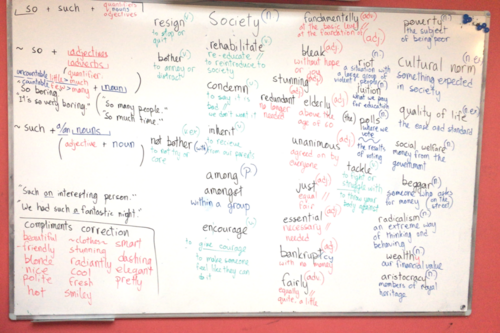 so + such +
quantifiers
nouns
adjectives
~ so +
adjectives
adverbs
quantifier
+ noun
"So boring"
"It's so very boring."
"So many people."
"So much time."
~ such + a/an nouns
(adjective + noun)
"Such an interesting person."
"We had such a fantastic night."
compliments correction
beautiful ~clothes~ smart
friendly stunning
blonde radiantly dashing
nice cool elegant
polite fresh pretty
hot smiley
resign (v)
to stop or
quit
bother (v)
to annoy or
distract
not bother (with) (v)
to not try or
care
Society (n)
rehabilitate (v)
re-educate //
to reintroduce to
society
condemn (v)
to say it is
bad //
we don't want it
inherit (v)
to receive
from our parents
among (p)
amongst
within a group
encourage (v)
to give courage
to make someone
feel like they can
do it
fundamentally (adv)
at the basic level //
at the foundation of
bleak (adj)
without hope
stunning (adj)
redundant (adj)
no longer
needed
elderly (adj)
above the
age of 60
unanimous (adj)
agreed on by
everyone
just (adj)
equal //
fair
essential (adj)
necessary //
needed
bankruptcy
with no money
fairly (adv)
equally //
quite, a little
riot (n)
a situation with
a large group of
violent people
tuition (n)
what we pay
for education
(the) polls (n)
where we
vote
the results
of voting
tackle (v)
to fight or
struggle with
to throw
your body
against
poverty (n)
the subject
of being poor
cultural norm (n)
something expected
in society
quality of life (n)
the ease and standard
social welfare (n)
money from the
government
beggar (n)
someone who asks
for money (on the street)
radicalism (n)
an extreme way
of thinking and
behaving
wealth (n)
our financial value
aristocracy (n)
members of royal
heritage